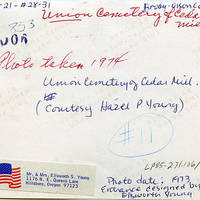 -21-#28-31
Union Cemetery of Cedar
Mill
353
Photo taken 1974
Union Cemetery of Cedar Mill.
(Courtesy Hazel P Young)
#11
LP85-271/116/
Mr. & Mrs. Ellsworth S. Young
1176 N. E. Queens Lane
Hillsboro, Oregon 97123
Photo date: 1973
Entrance designed by
Ellsworth Young